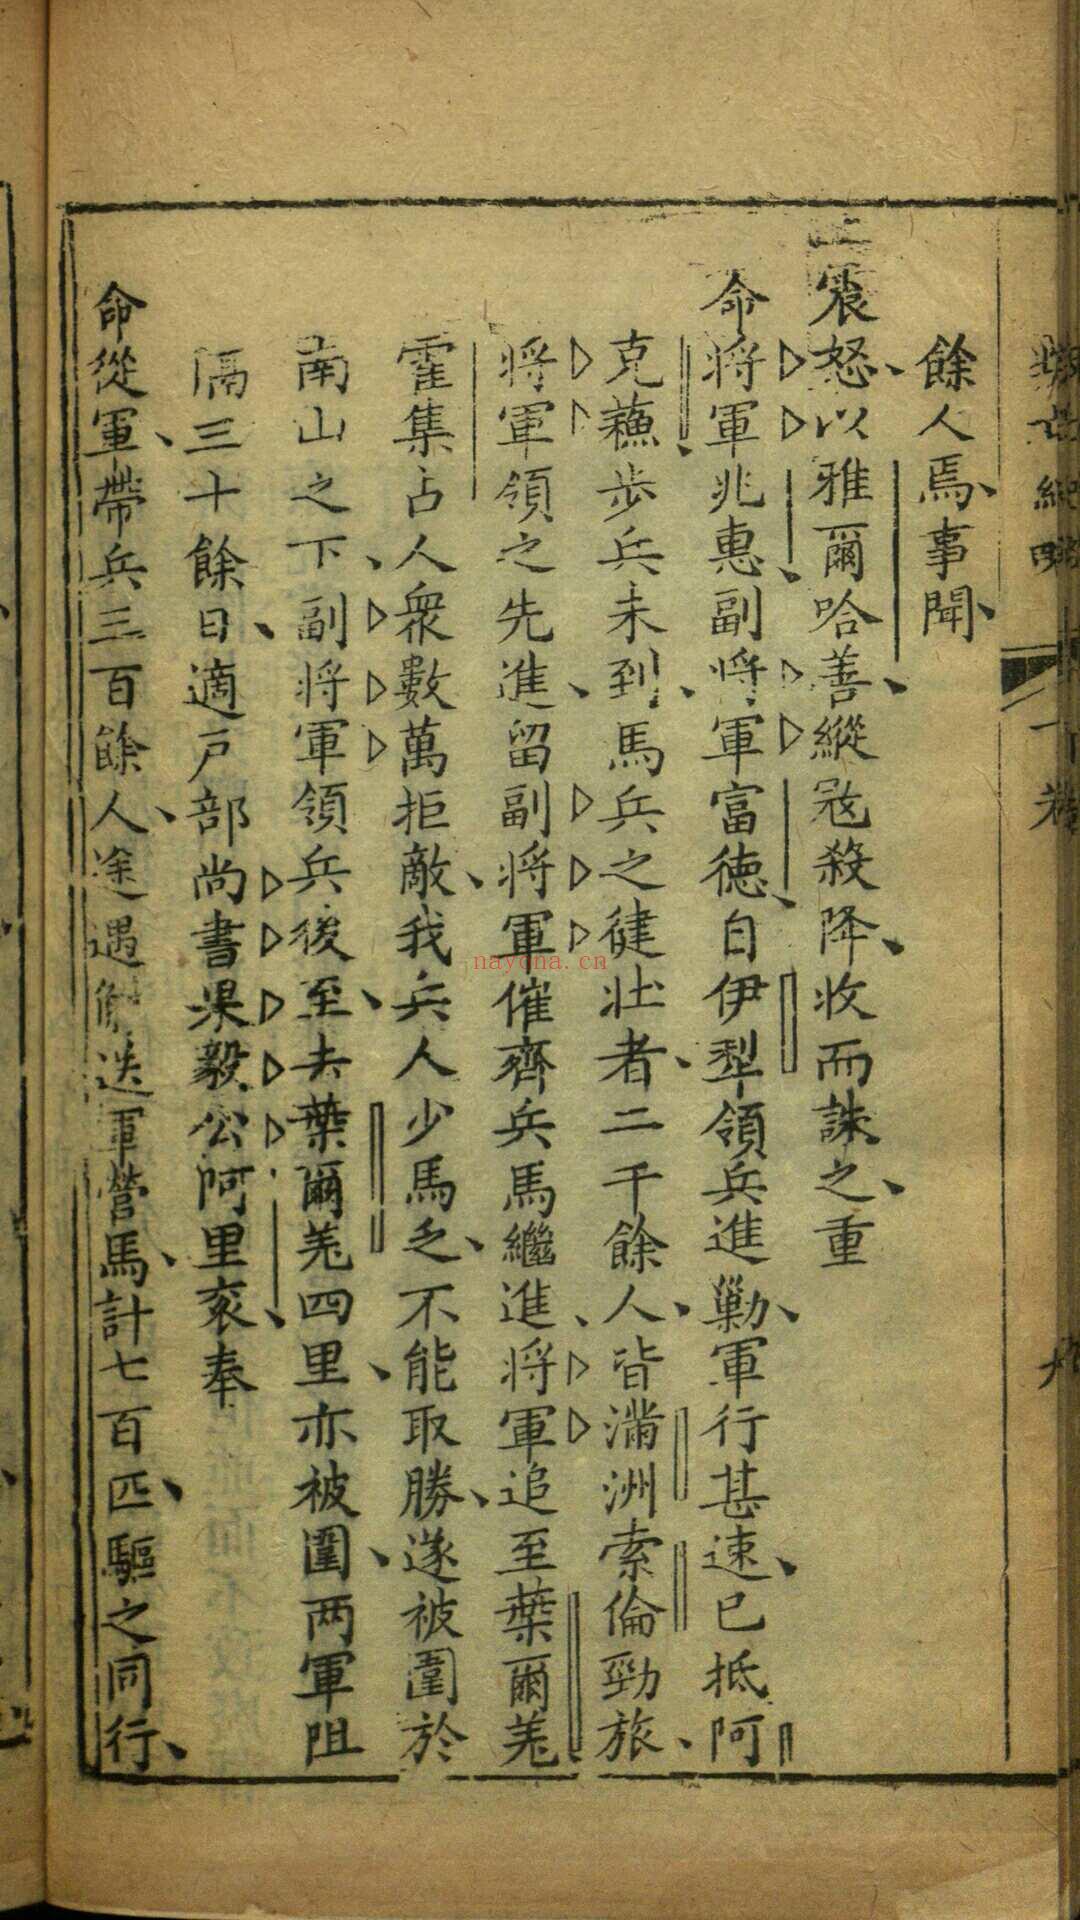 餘人焉事聞
上震怒以雅爾哈善縱寇殺降收而誅之重
命將軍兆惠副將軍富德自伊犁領兵進勦軍行甚速已抵阿
克蘓步兵未到馬兵之健壯者二千餘人皆滿洲索倫勁旅
將軍領之先進留副將軍催齊兵馬繼進將軍追至葉爾羌
霍集占人衆數萬拒敵我兵人少馬乏不能取勝遂被圍於
南山之下副將軍領兵後至去葉爾羌四里亦被圍两軍阻
隔三十餘日適戶部尚書果毅公阿里衮奉
命從軍帶兵三百餘人途遇解送軍營馬計七百匹驅之同行
nayona.cn